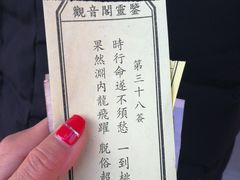 觀音閣靈鑒
第三十八簽
時行命遂不須愁 一到桃
果然淵內龍飛躍 脫俗超